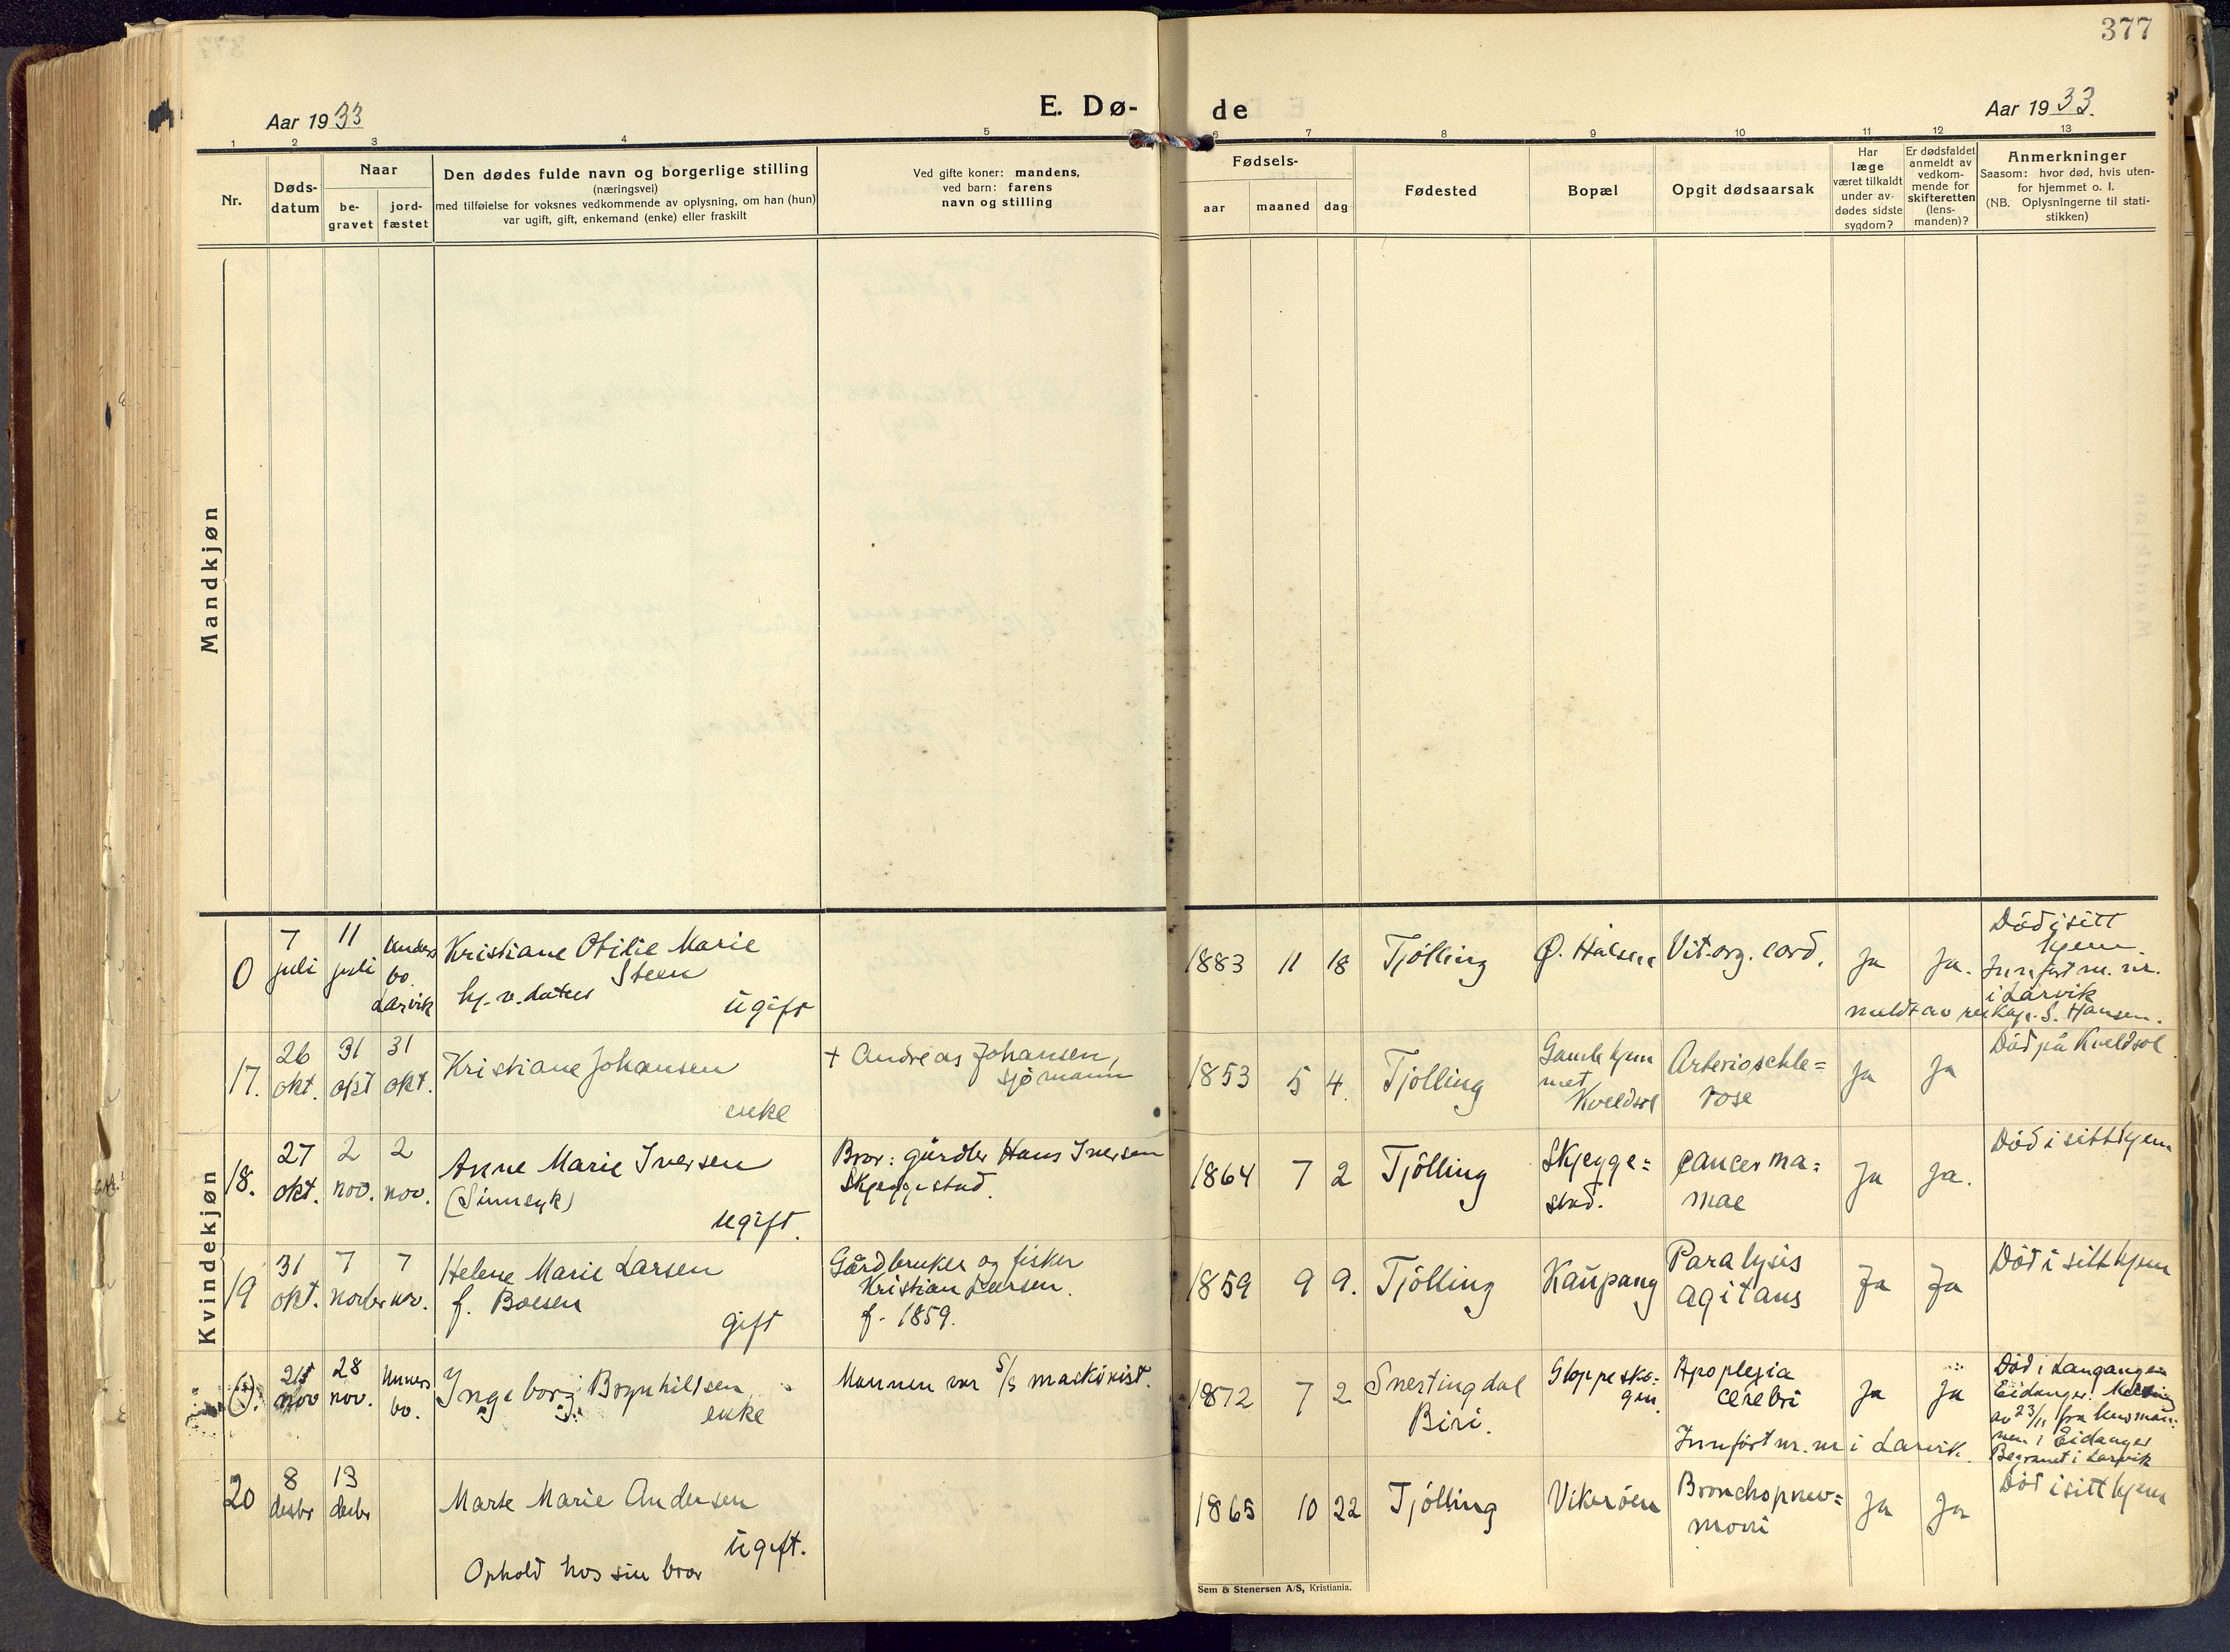 377
Aar 1933
E. Dø-
de
Aar 1933.
1
2
3
4
5
6
7
8
9
10
11
12
13
Nr.
Døds-
datum
Naar
be-
gravet
jord-
fæstet
Den dødes fulde navn og borgerlige stilling
(næringsvei)
med tilføielse for voksnes vedkommende av oplysning, om han (hun)
var ugift, gift, enkemand (enke) eller fraskilt
Ved gifte koner: mandens,
ved barn: farens
navn og stilling
Fødsels-
aar
maaned
dag
Fødested
Bopæl
Opgit dødsaarsak
Har
læge
været tilkaldt
under av-
dødes sidste
sygdom?
Er dødsfaldet
anmeldt av
vedkom-
mende for
skifteretten
(lens-
manden)?
Anmerkninger
Saasom: hvor død, hvis uten-
for hjemmet o. l.
(NB. Oplysningerne til stati-
stikken)
Mandkjøn
Kvindekjøn
0
7
juli
11
juli
bo.
Larvik
Kristiane Otilie Marie
Steen
ugift
1883
11
18
Tjölling
Ø. Halsen
Vit. org. cord.
Ja
Ja.
Död i sitt
hjem.
i Larvik
meldt av
S. Hansen.
17.
26
okt.
31
okt
31
okt.
Kristiane Johansen
enke
+ Andreas Johansen,
sjömann
1853
5
4.
Tjölling
Gamlehjem
met
Kveldsol
Arterioschle=
rose
Ja
Ja
Död på Kveldsol
18.
27
okt.
2
nov.
2
nov.
Anne Marie Iversen
(Sinnsyk)
ugift.
Bror: gårdbr Hans Iversen
Skjeggestad.
1864
7
2
Tjölling
Skjegge=
stad.
Cancer ma=
mae
Ja
Ja.
Död i sitt hjem
19
31
okt.
7
novbr
7
nov.
Helene Marie Larsen
f. Boesen
gift
Gårdbruker og fisker
Kristian Larsen.
f. 1859.
1859
9
9.
Tjölling
Kaupang
Paralysis
agitans
Ja
Ja
Död i sitt hjem
21
nov
28
nov.
bo.
Ingeborg Brynhilsen
enke
Mannen var S/S maskinist.
1872
7
2
Snertingdal
Biri.
Gloppesko=
gen.
Apoplexia
cerebri
Ja
Ja
Innfört m. nr i Larvik.
Död i Langangen
Eidanger. Melding
av 23/11 fra lensman=
nen i Eidanger
Begravet i Larvik
20
8
desbr
13
desbr
Marte Marie Andersen
ugift.
Ophold hos sin bror
1865
10
22
Tjölling
Vikeröen
Bronchopneu=
moni
Ja
Ja
Död i sitt hjem
Sem & Stenersen A/S, Kristiania.